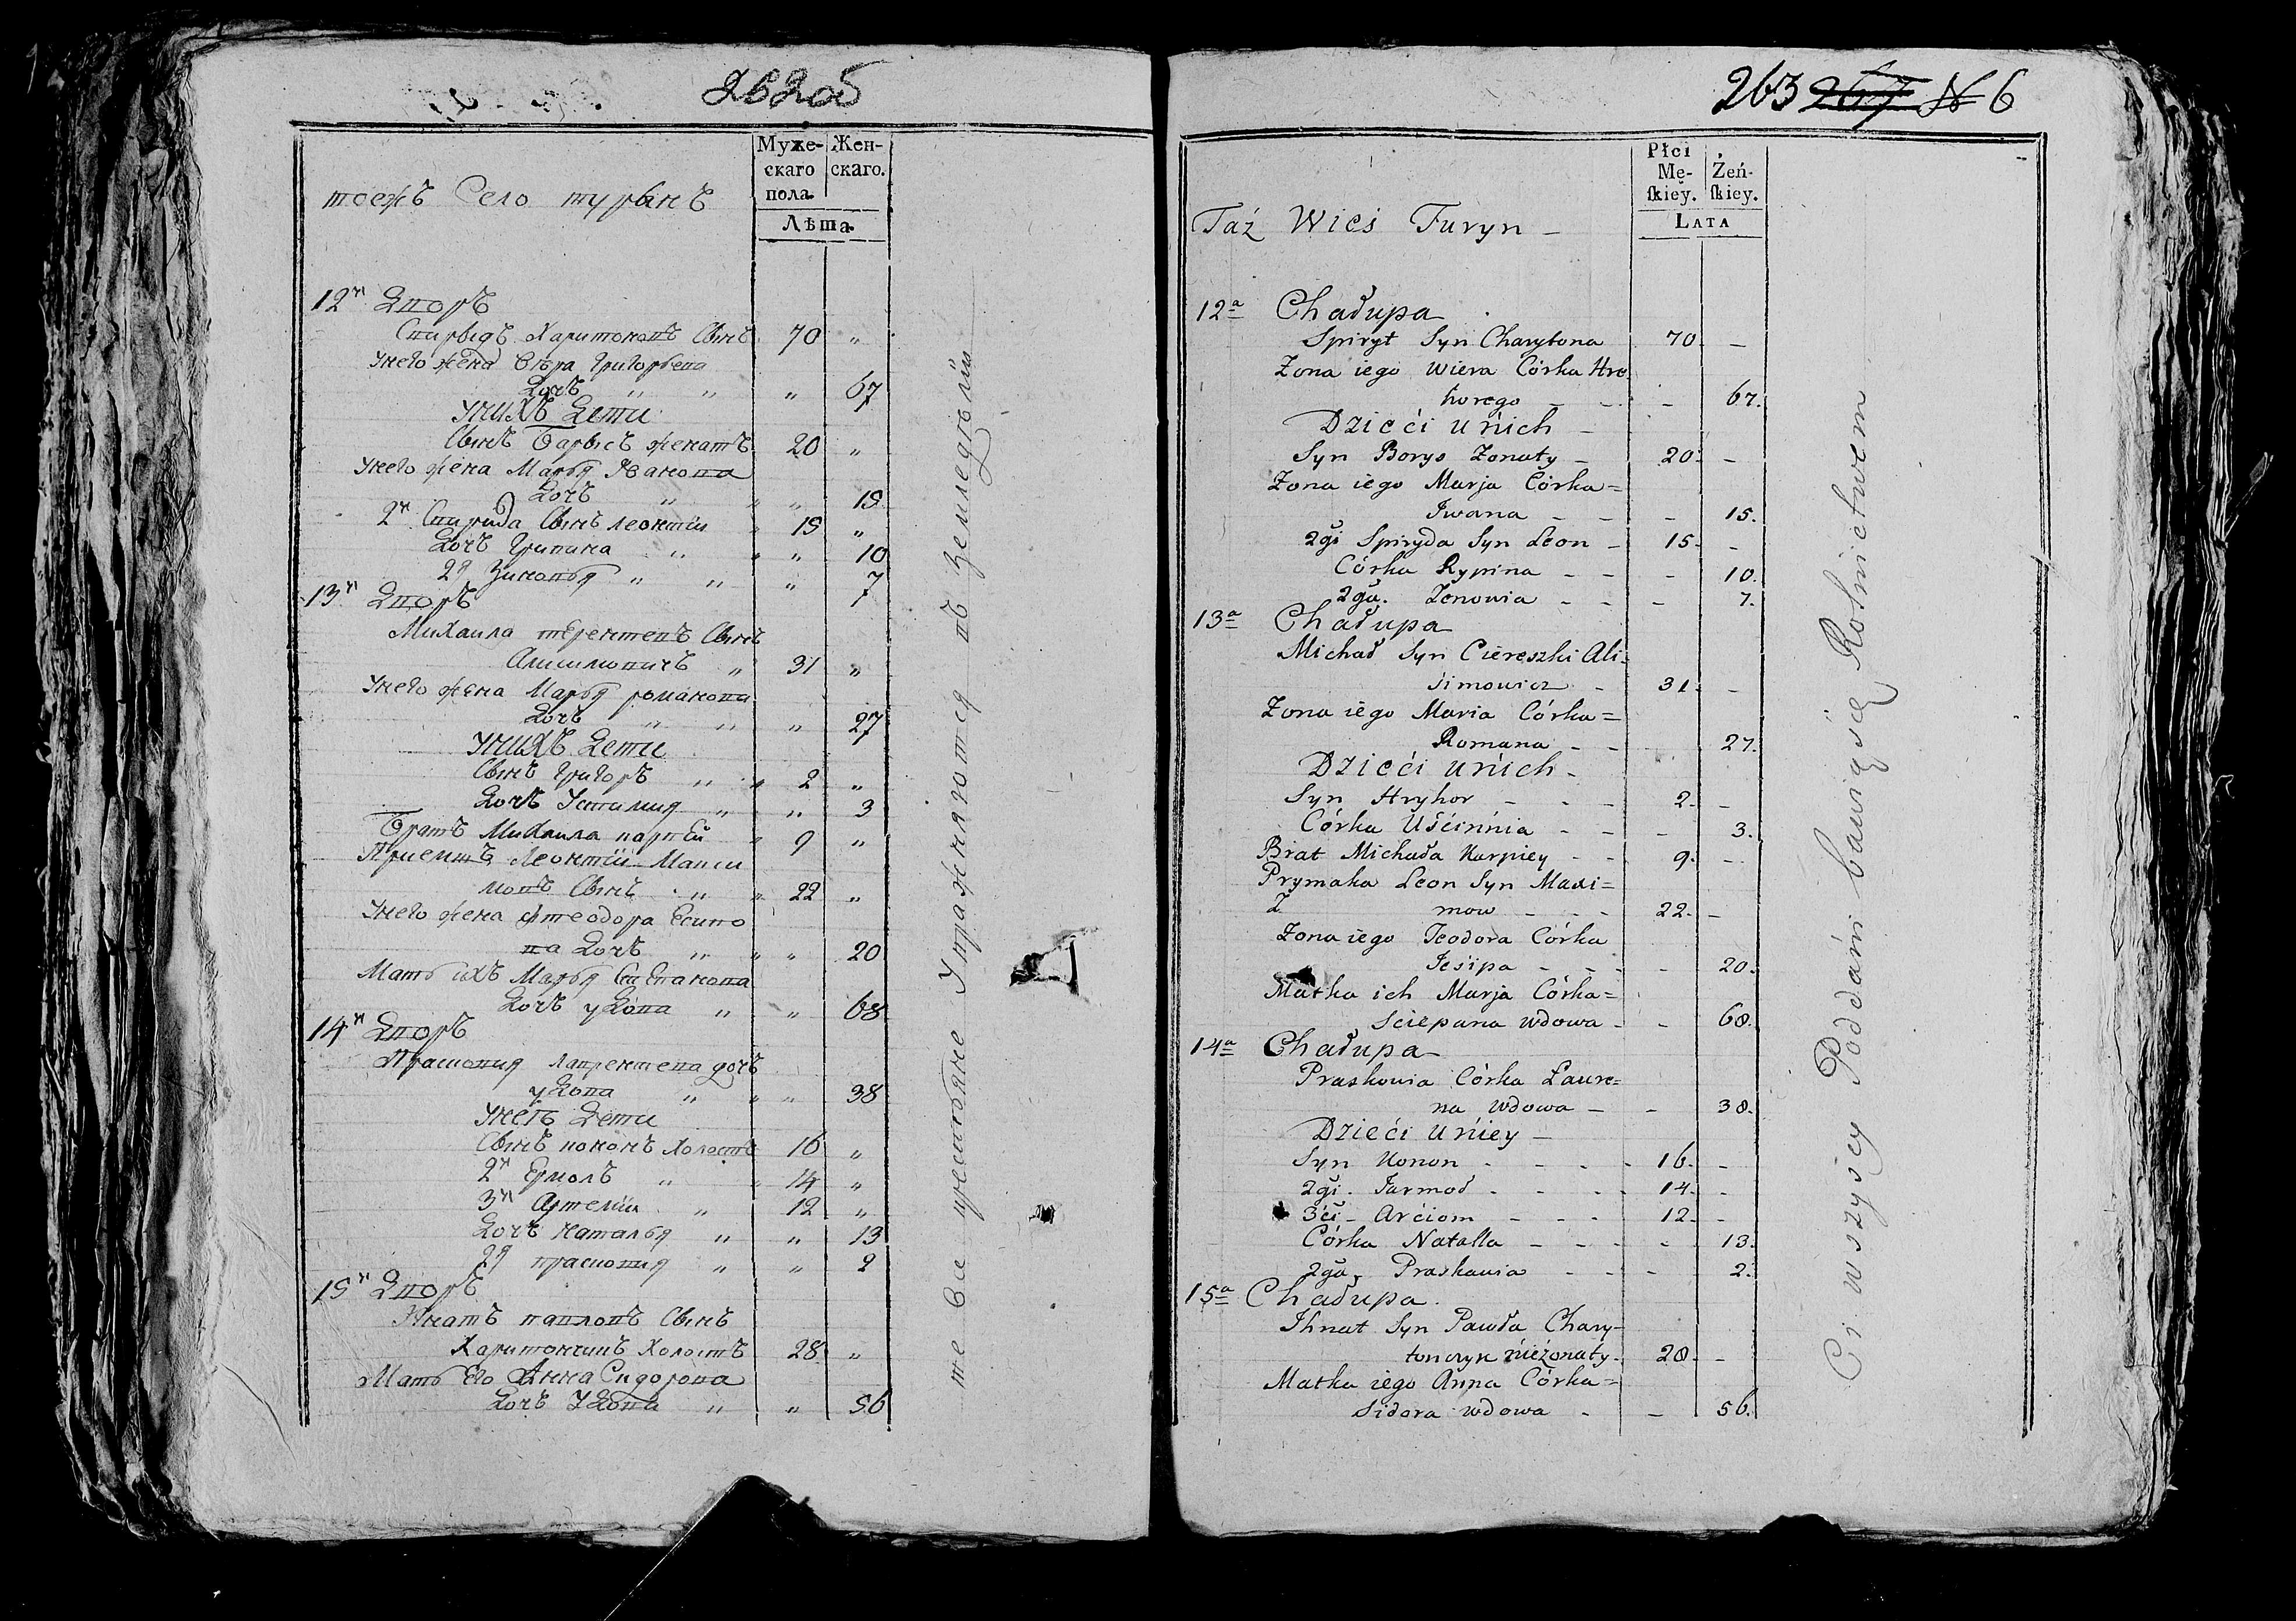 262об
Муже-
скаго
пола.
Жен-
скаго.
Лѣта.
тоежъ Село турынъ
12й Дворъ
Спирыдъ Харитоновъ Сынъ 70 "
Унего жена Вѣра Григорьева
Дочь " " " 67
Унихъ Дети
Сынъ Барысъ женатъ 20 "
Унего жена Марья Ивановa
Дочь " " " 15
2й Спирида Сынъ леонтіи " 15 "
Дочь Грипина " " " 10
2я Зиновья " " " 7
13й Дворъ
Михаила терентевъ Сынъ
Алисимовичъ " 31 "
Унего жена Марья романова
Дочь " " " 27
Унихъ Дети
Сынъ Григоръ " " 2 "
Дочь Устимия " " 3
Братъ Михаила карпей " 9 "
Приемтъ Леонтіи Макси
мовъ Сынъ " " 22 "
Унего жена Фтеодора Есипо
ва Дочь " " " 20
Мать ихъ Марья Степанова
Дочь удова " " 68
14й Дворъ
Прасковия лаврентева дочь
удова " " " 38
Унеѣ Дети
Сынъ кононъ Холостъ 16 "
2й Ермолъ " " 14 "
3й Артемiи " 12 "
Дочь Наталья " " 13
2я прасковия " " 2
15й Дворъ
Игнатъ павловъ Сынъ
Харитончикъ Холостъ 28 "
Мать Его Анна Сидорова
Дочь Удова " " 56
те вси крестьяне Упражняются въ Земледелїи
263 267 № 6
Płci
Mę-
skiey.
Żeń-
skiey.
LATA
Taż Wieś Turyn –
12a Chałupa
Spiryt Syn Charytona 70 –
Zona iego Wiera Córka Hre
horego – – – 67.
Dzieći uńich –
Syn Borys Zonaty – 20. –
Zona iego Marja Córka=
Iwana – – – 15.
2gi Spiryda Syn Leon – 15. –
Córka Rypina – – – 10.
2ga. Zenowia – – – 7.
13a Chałupa
Michał Syn Ciereszki Ali-
simowicz – 31. –
Zona iego Maria Córka=
Romana – – 27.
Dzieći uńich –
Syn Hryhor – – – 2. –
Córka Uśćinńia – – – 3.
Brat Michała Karpiey – – 9. –
Prymaka Leon Syn Maxi=
mow – – – 22. –
Zona iego Teodora Córka
Jesipa – – – – 20.
Matka ich Marja Córka=
Sciepana wdowa – – 68.
14a Chałupa
Praskowia Córka Laure=
na wdowa – – 38.
Dzieći uńiey –
Syn Konon – – – – 16. –
2gi. Jarmoł – – – – 14. –
3ći – Arćiom – – – 12. –
Córka Natalla – – – – 13.
2ga, Praskawia – – – – 2.
15a Chałupa.
Ihnat Syn Pawła Chary-
tonczyk nieżonaty. 28. –
Matka iego Anna Córka=
Sidora wdowa – – 56.
Ci wszyscy Poddáni bawią się Rolnictwem